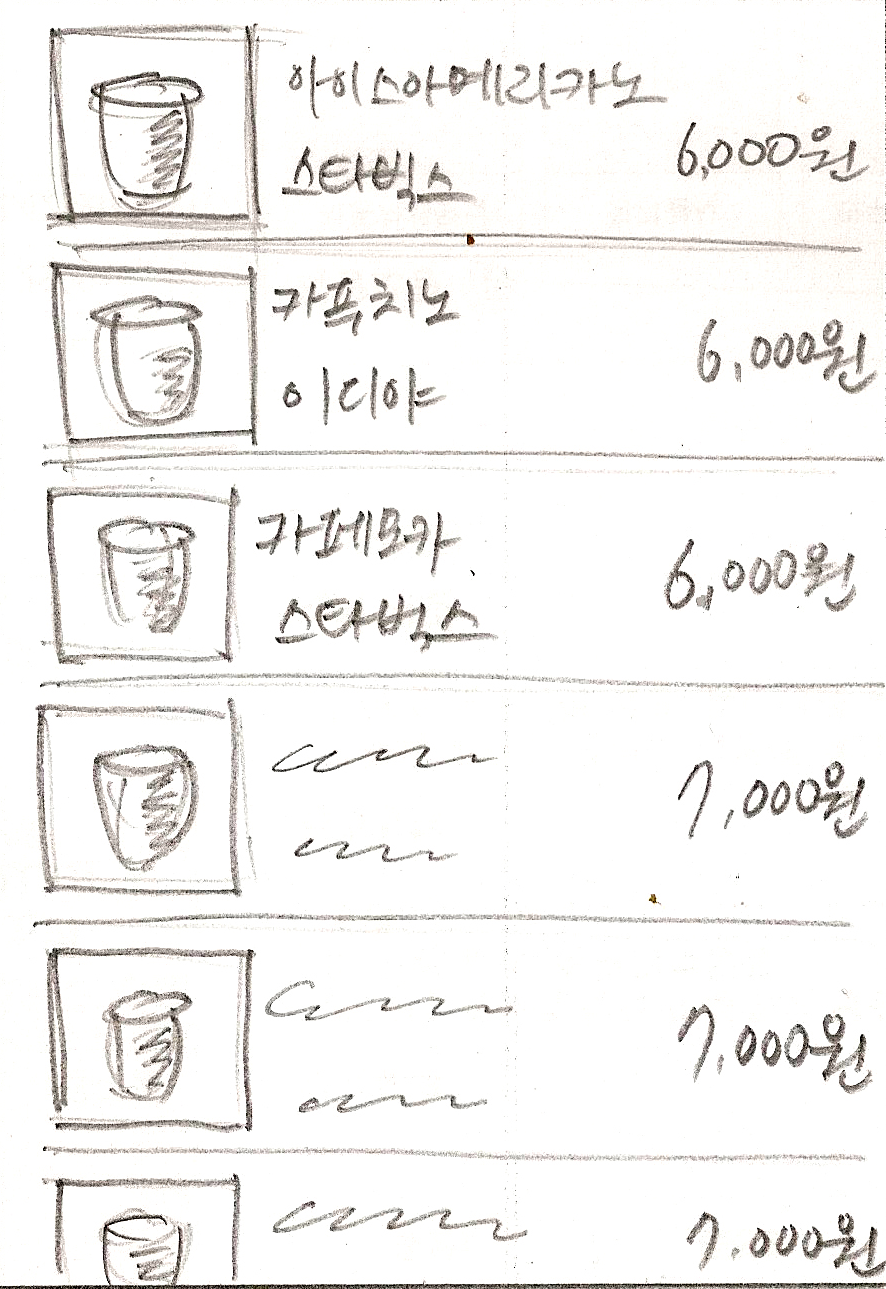 아이스아메리카노
스타벅스
6,000원
카푸치노
이디야
6,000원
카페모카
스타벅스
6,000원
7,000원
7,000원
7,000원